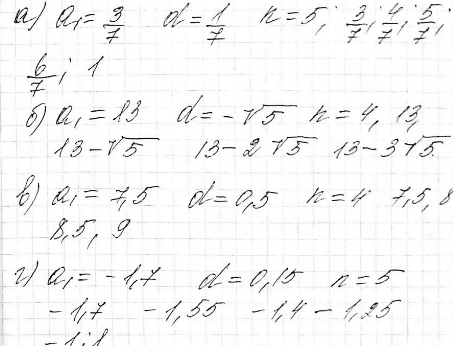 а) a₁ = 3/7 d = 1/7 n = 5; 3/7; 4/7; 5/7;
6/7; 1
б) a₁ = 13 d = -√5 n = 4, 13,
13-√5 13-2√5 13-3√5.
в) a₁ = 7,5 d = 0,5 n = 4 7,5, 8
8,5, 9
г) a₁ = -1,7 d = 0,15 n = 5
-1,7 -1,55 -1,4 -1,25
-1,1